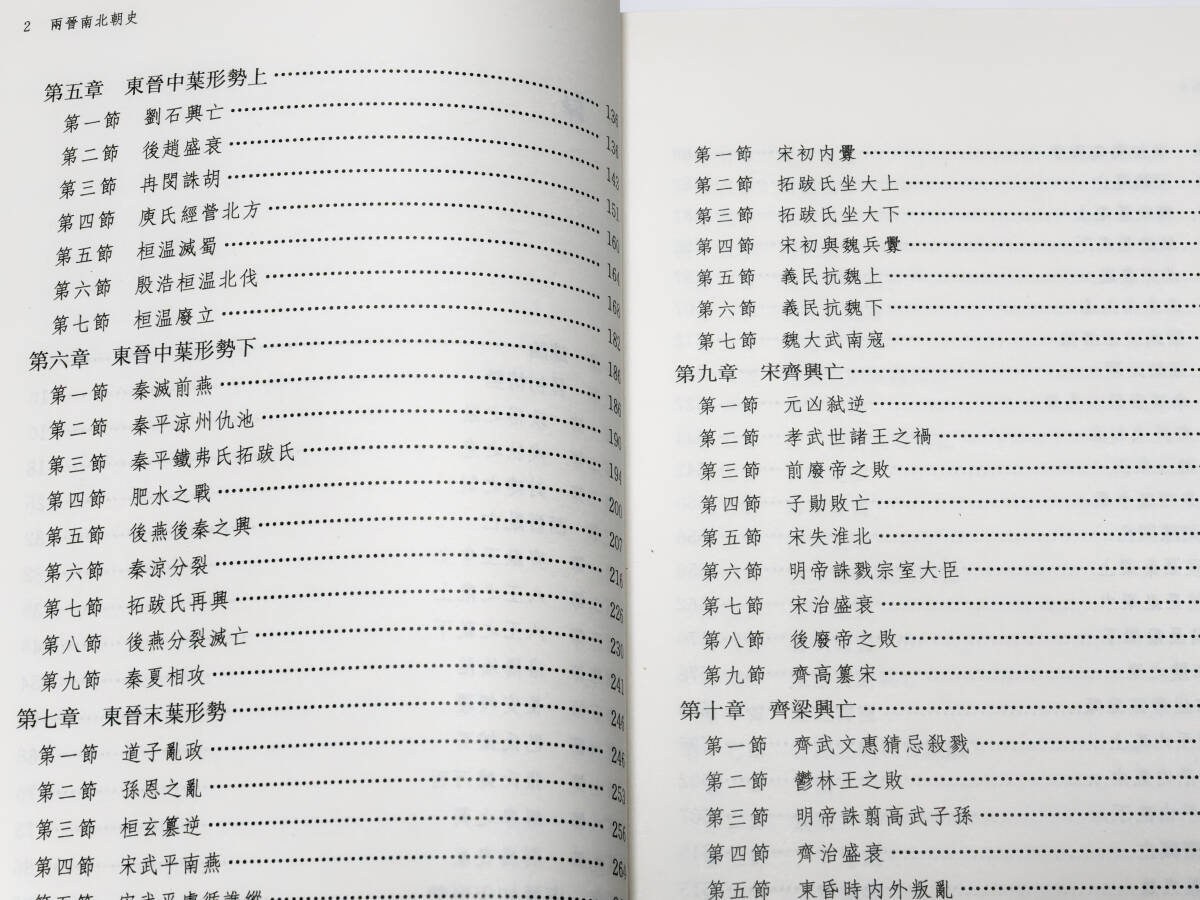 2 兩晉南北朝史
第五章 東晉中葉形勢上……136
第一節 劉石興亡……136
第二節 後趙盛衰……143
第三節 冉閔誅胡……151
第四節 庾氏經營北方……160
第五節 桓温滅蜀……164
第六節 殷浩桓温北伐……168
第七節 桓温廢立……182
第六章 東晉中葉形勢下……186
第一節 秦滅前燕……186
第二節 秦平涼州仇池……190
第三節 秦平鐵弗氏拓跋氏……194
第四節 肥水之戰……200
第五節 後燕後秦之興……207
第六節 秦涼分裂……216
第七節 拓跋氏再興……226
第八節 後燕分裂滅亡……230
第九節 秦夏相攻……241
第七章 東晉末葉形勢……246
第一節 道子亂政……246
第二節 孫恩之亂……253
第三節 桓玄篡逆……256
第四節 宋武平南燕……264
第五節 宋武平盧循譙縱
第一節 宋初内釁……
第二節 拓跋氏坐大上……
第三節 拓跋氏坐大下……
第四節 宋初與魏兵釁……
第五節 義民抗魏上……
第六節 義民抗魏下……
第七節 魏大武南寇……
第九章 宋齊興亡……
第一節 元凶弑逆……
第二節 孝武世諸王之禍……
第三節 前廢帝之敗……
第四節 子勛敗亡……
第五節 宋失淮北……
第六節 明帝誅戮宗室大臣……
第七節 宋治盛衰……
第八節 後廢帝之敗……
第九節 齊高篡宋……
第十章 齊梁興亡……
第一節 齊武文惠猜忌殺戮……
第二節 鬱林王之敗……
第三節 明帝誅翦高武子孫……
第四節 齊治盛衰……
第五節 東昏時内外叛亂……